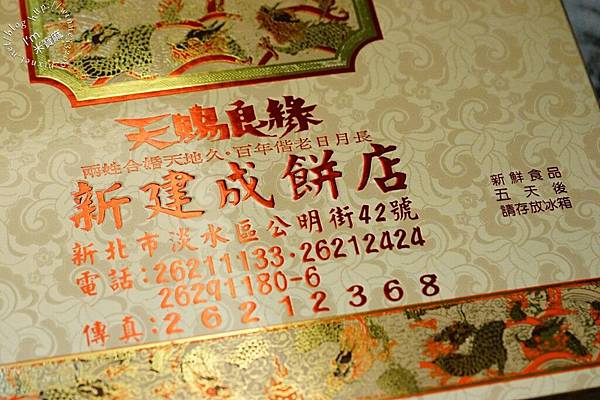 天賜良緣
兩姓合婚天地久·百年偕老日月長
新建成餅店
新北市淡水區公明街42號
電話:26211133·26212424
26291180-6
傳真:26212368
新鮮食品
五天後
請存放冰箱
I'm
米寶麻